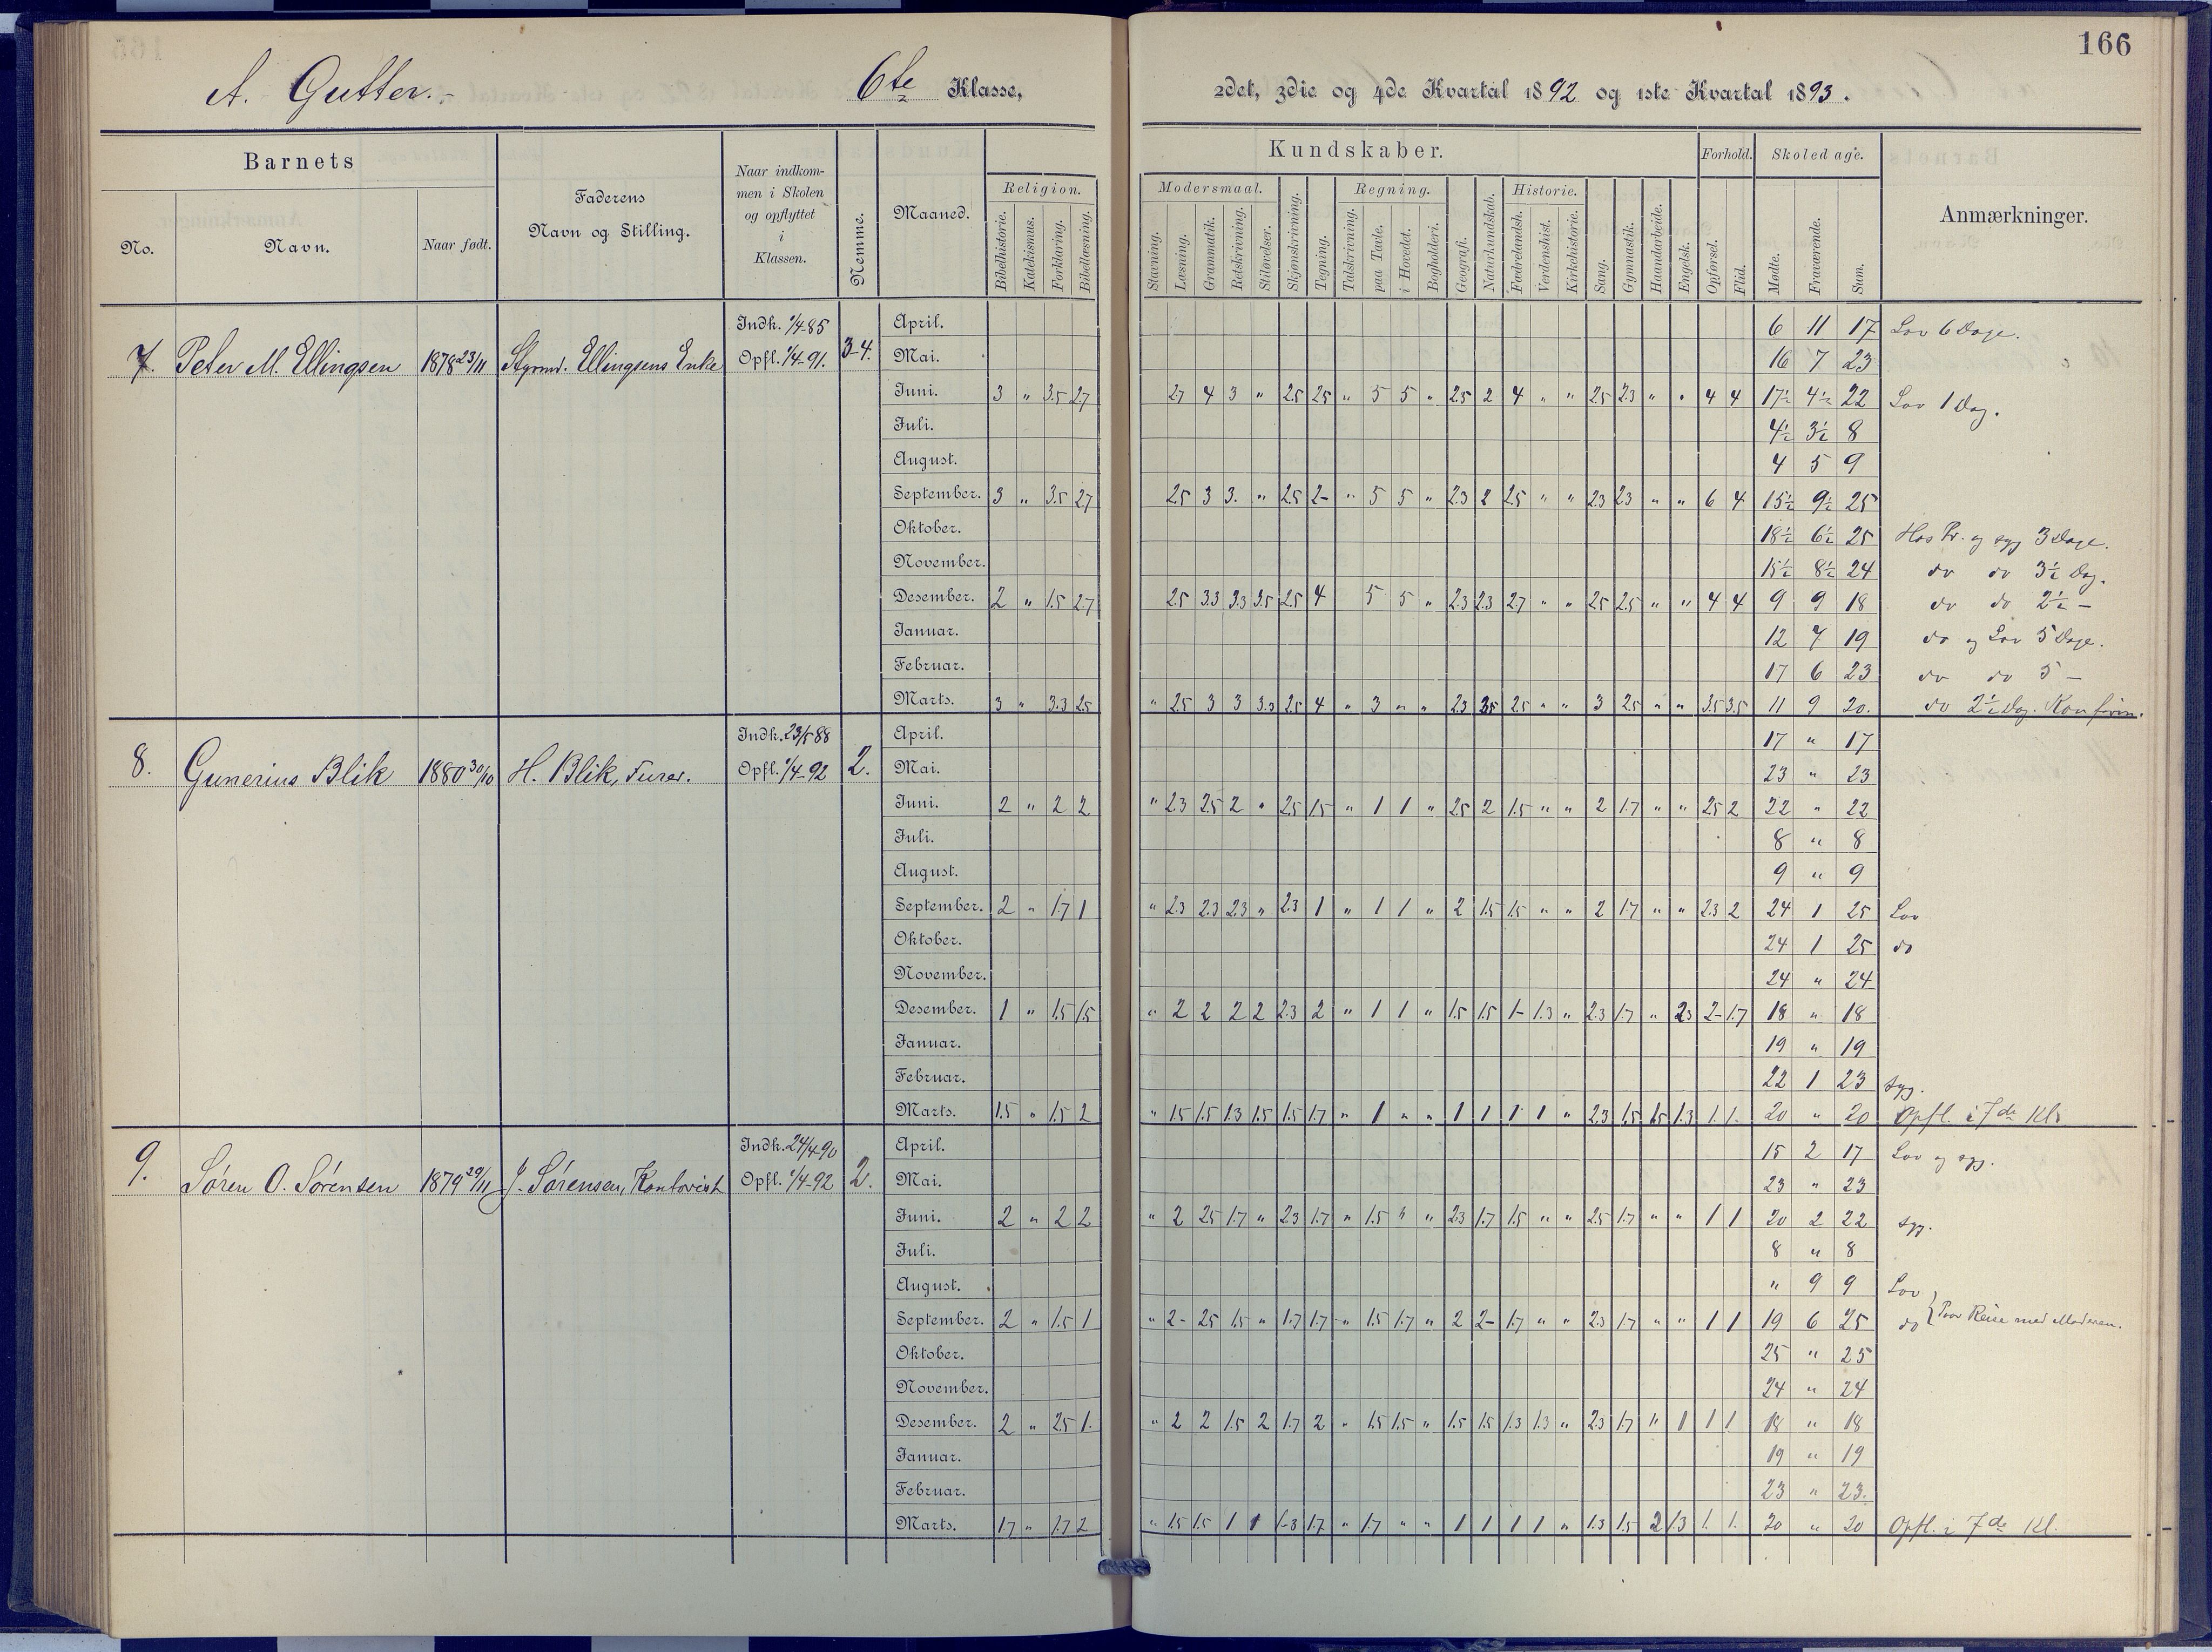 166
A. Gutter.- 6te Klasse, 2det, 3die og 4de Kvartal 1892 og 1ste Kvartal 1893.
Barnets Kundskaber. Forhold. Skoledage.
No. Navn. Naar født. Faderens Navn og Stilling. Naar indkommen i Skolen og opflyttet i Klassen. Nemme. Maaned. Religion. Modersmaal. Regning. Historie. Anmærkninger.
Bibelhistorie. Katekismus. Forklaring. Bibellæsning. Stavning. Læsning. Grammatik. Retskrivning. Stiløvelser. Skjønskrivning. Tegning. Talskrivning. paa Tavle. i Hovedet. Bogholderi. Geografi. Naturkundskab. Fædrelandsh. Verdenshist. Kirkehistorie. Sang. Gymnastik. Haandarbeide. Engelsk. Opførsel. Flid. Mødte. Fraværende. Sum.
7. Peter M. Ellingsen 1878 23/11 Styrmd. Ellingsens Enke Indk. 1/4-85 Opfl. 1/4-91. 3-4.
April. 6 11 17 Lov 6 Dage.
Mai. 16 7 23
Juni. 3 " 3.5 2.7 2.7 4 3 " 2.5 2.5 " 5 5 " 2.5 2 4 " " 2.5 2.3 " " 4 4 17½ 4½ 22 Lov 1 Dag.
Juli. 4½ 3½ 8
August. 4 5 9
September. 3 " 3.5 2.7 2.5 3 3. " 2.5 2- " 5 5 " 2.3 2 2.5 " " 2.3 2.3 " " 6 4 15½ 9½ 25
Oktober. 18½ 6½ 25 Hos Pr. og syg 3 Dage.
November. 15½ 8½ 24 do do 3½ Dag.
Desember. 2 " 1.5 2.7 2.5 3.3 3.3 3.5 2.5 4 5 5 " 2.3 2.3 2.7 " " 2.5 2.5 " " 4 4 9 9 18 do do 2½ -
Januar. 12 7 19 do og Lov 5 Dage.
Februar. 17 6 23 do do 5 -
Marts. 3 " 3.3 2.5 " 2.5 3 3 3.3 2.5 4 " 3 " " 2.3 3.5 2.5 " " 3 2.5 " " 3.5 3.5 11 9 20. do 2½ Dag. Konfirm.
8. Gunerius Blik 1880 30/10 H. Blik, Furer. Indk. 23/5 88 Opfl. 1/4-92 2.
April. 17 " 17
Mai. 23 " 23
Juni. 2 " 2 2 " 2.3 2.5 2 " 2.5 1.5 " 1 1 " 2.5 2 1.5 " " 2 1.7 " " 2.5 2 22 " 22
Juli. 8 " 8
August. 9 " 9
September. 2 " 1.7 1 " 2.3 2.3 2.3 " 2.3 1 " 1 1 " 2 1.5 1.5 " " 2 1.7 " " 2.3 2 24 1 25 Lov
Oktober. 24 1 25 do
November. 24 " 24
Desember. 1 " 1.5 1.5 " 2 2 2 2 2.3 2 " 1 1 " 1.5 1.5 1- 1.3 " 2.3 1.7 " 2.3 2- 1.7 18 " 18
Januar. 19 " 19
Februar. 22 1 23 syg.
Marts. 1.5 " 1.5 2 " 1.5 1.5 1.3 1.5 1.5 1.7 " 1 " " 1 1 1 1 " 2.3 1.5 1.5 1.3 1. 1. 20 " 20 Opfl. i 7de Kl.
9. Søren O. Sørensen 1879 29/11 J. Sørensen, Kontorist Indk. 24/4-90 Opfl. 1/4-92 2.
April. 15 2 17 Lov og syg.
Mai. 23 " 23
Juni. 2 " 2 2 " 2 2.5 1.7 " 2.3 1.7 " 1.5 " " 2.3 1.7 1.5 " " 2.5 1.7 " " 1 1 20 2 22 syg.
Juli. 8 " 8
August. " 9 9 Lov
September. 2 " 1.5 1 " 2- 2.5 1.5 " 1.7 1.7 " 1.5 1.7 " 2 2- 1.7 " " 2.3 1.7 " " 1 1 19 6 25 do } Paa Reise med Moderen.
Oktober. 25 " 25
November. 24 " 24
Desember. 2 " 2.5 1. " 2 2 1.5 2 1.7 2 " 1.5 1.5 " 1.5 1.5 1.3 1.3 " 2.3 1.7 " 1 1 1 18 " 18
Januar. 19 " 19
Februar. 23 " 23.
Marts. 1.7 " 1.7 2 " 1.5 1.5 1 1 1-3 1.7 " 1.7 " " 1 1 1 1 " 1.3 1.5 2 1.3 1. 1. 20 " 20 Opfl. i 7de Kl.